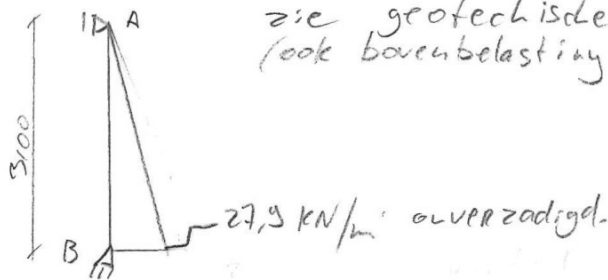 A
zie geotechische
(ook bovenbelasting
3,00
27,9 kN/m' onverzadigd.
B